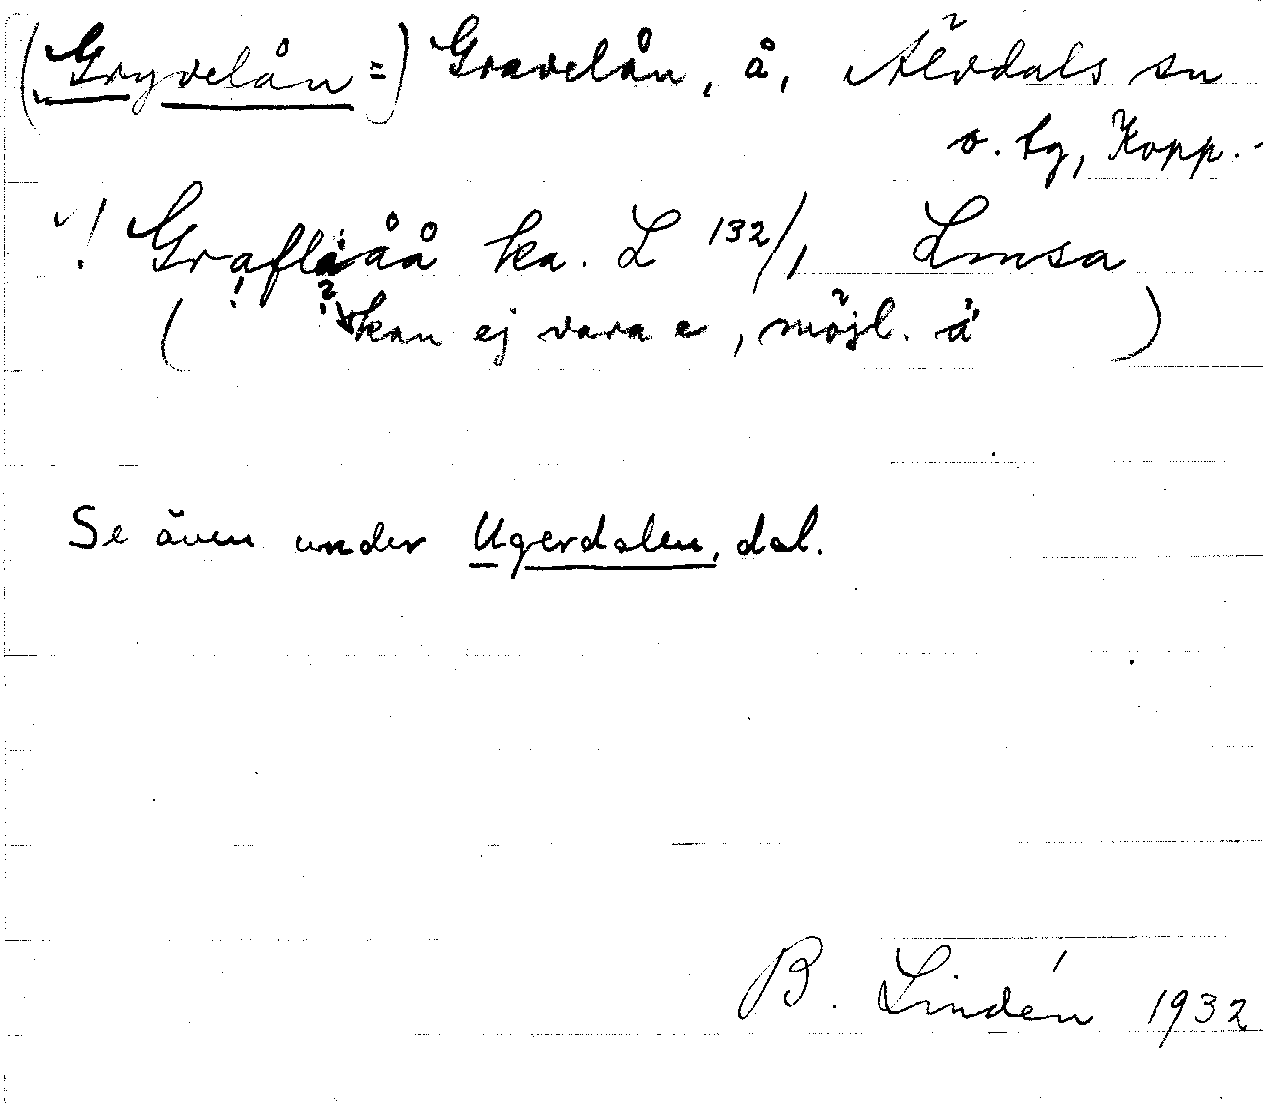 (Gryvelån =) Gravelån, å, Älvdals sn
o. tg, Kopp.
! Graflåå ka. L 132/1 Lmsa
! ?
(kan ej vara e, möjl. å)
Se även under Ugerdalen, dal.
B. Lindén 1932